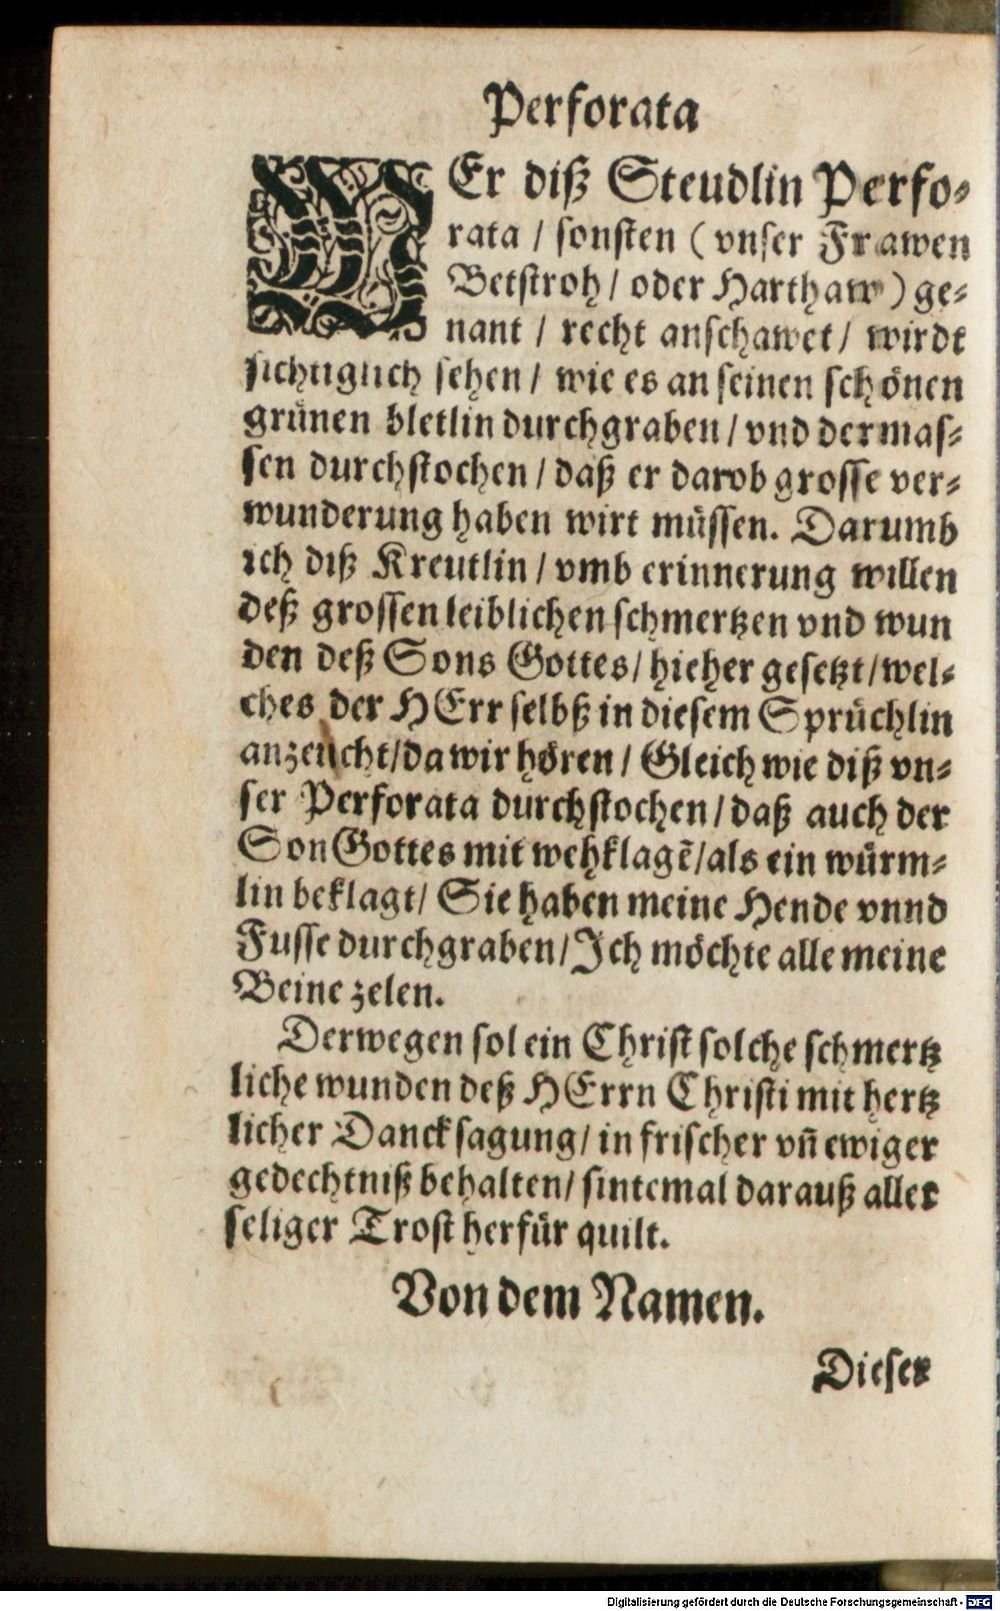 Perforata
WEr diß Steudlin Perfo-
rata / sonsten (vnser Frawen
Betstroh / oder Harthaw) ge-
nant / recht anschawet / wirdt
sichtiglich sehen / wie es an seinen schönen
grünen bletlin durchgraben / vnd dermas-
sen durchstochen / daß er darob grosse ver-
wunderung haben wirt müssen. Darumb
ich diß Kreutlin / vmb erinnerung willen
deß grossen leiblichen schmertzen vnd wun
den deß Sons Gottes / hieher gesetzt / wel-
ches der HErr selbß in diesem Sprüchlin
anzeucht / da wir hören / Gleich wie diß vn-
ser Perforata durchstochen / daß auch der
Son Gottes mit wehklagẽ / als ein würm-
lin beklagt / Sie haben meine Hende vnnd
Fusse durchgraben / Ich möchte alle meine
Beine zelen.
Derwegen sol ein Christ solche schmertz
liche wunden deß HErrn Christi mit hertz
licher Dancksagung / in frischer vñ ewiger
gedechtniß behalten / sintemal darauß aller
seliger Trost herfür quilt.
Von dem Namen.
Dieser
Digitalisierung gefördert durch die Deutsche Forschungsgemeinschaft - DFG